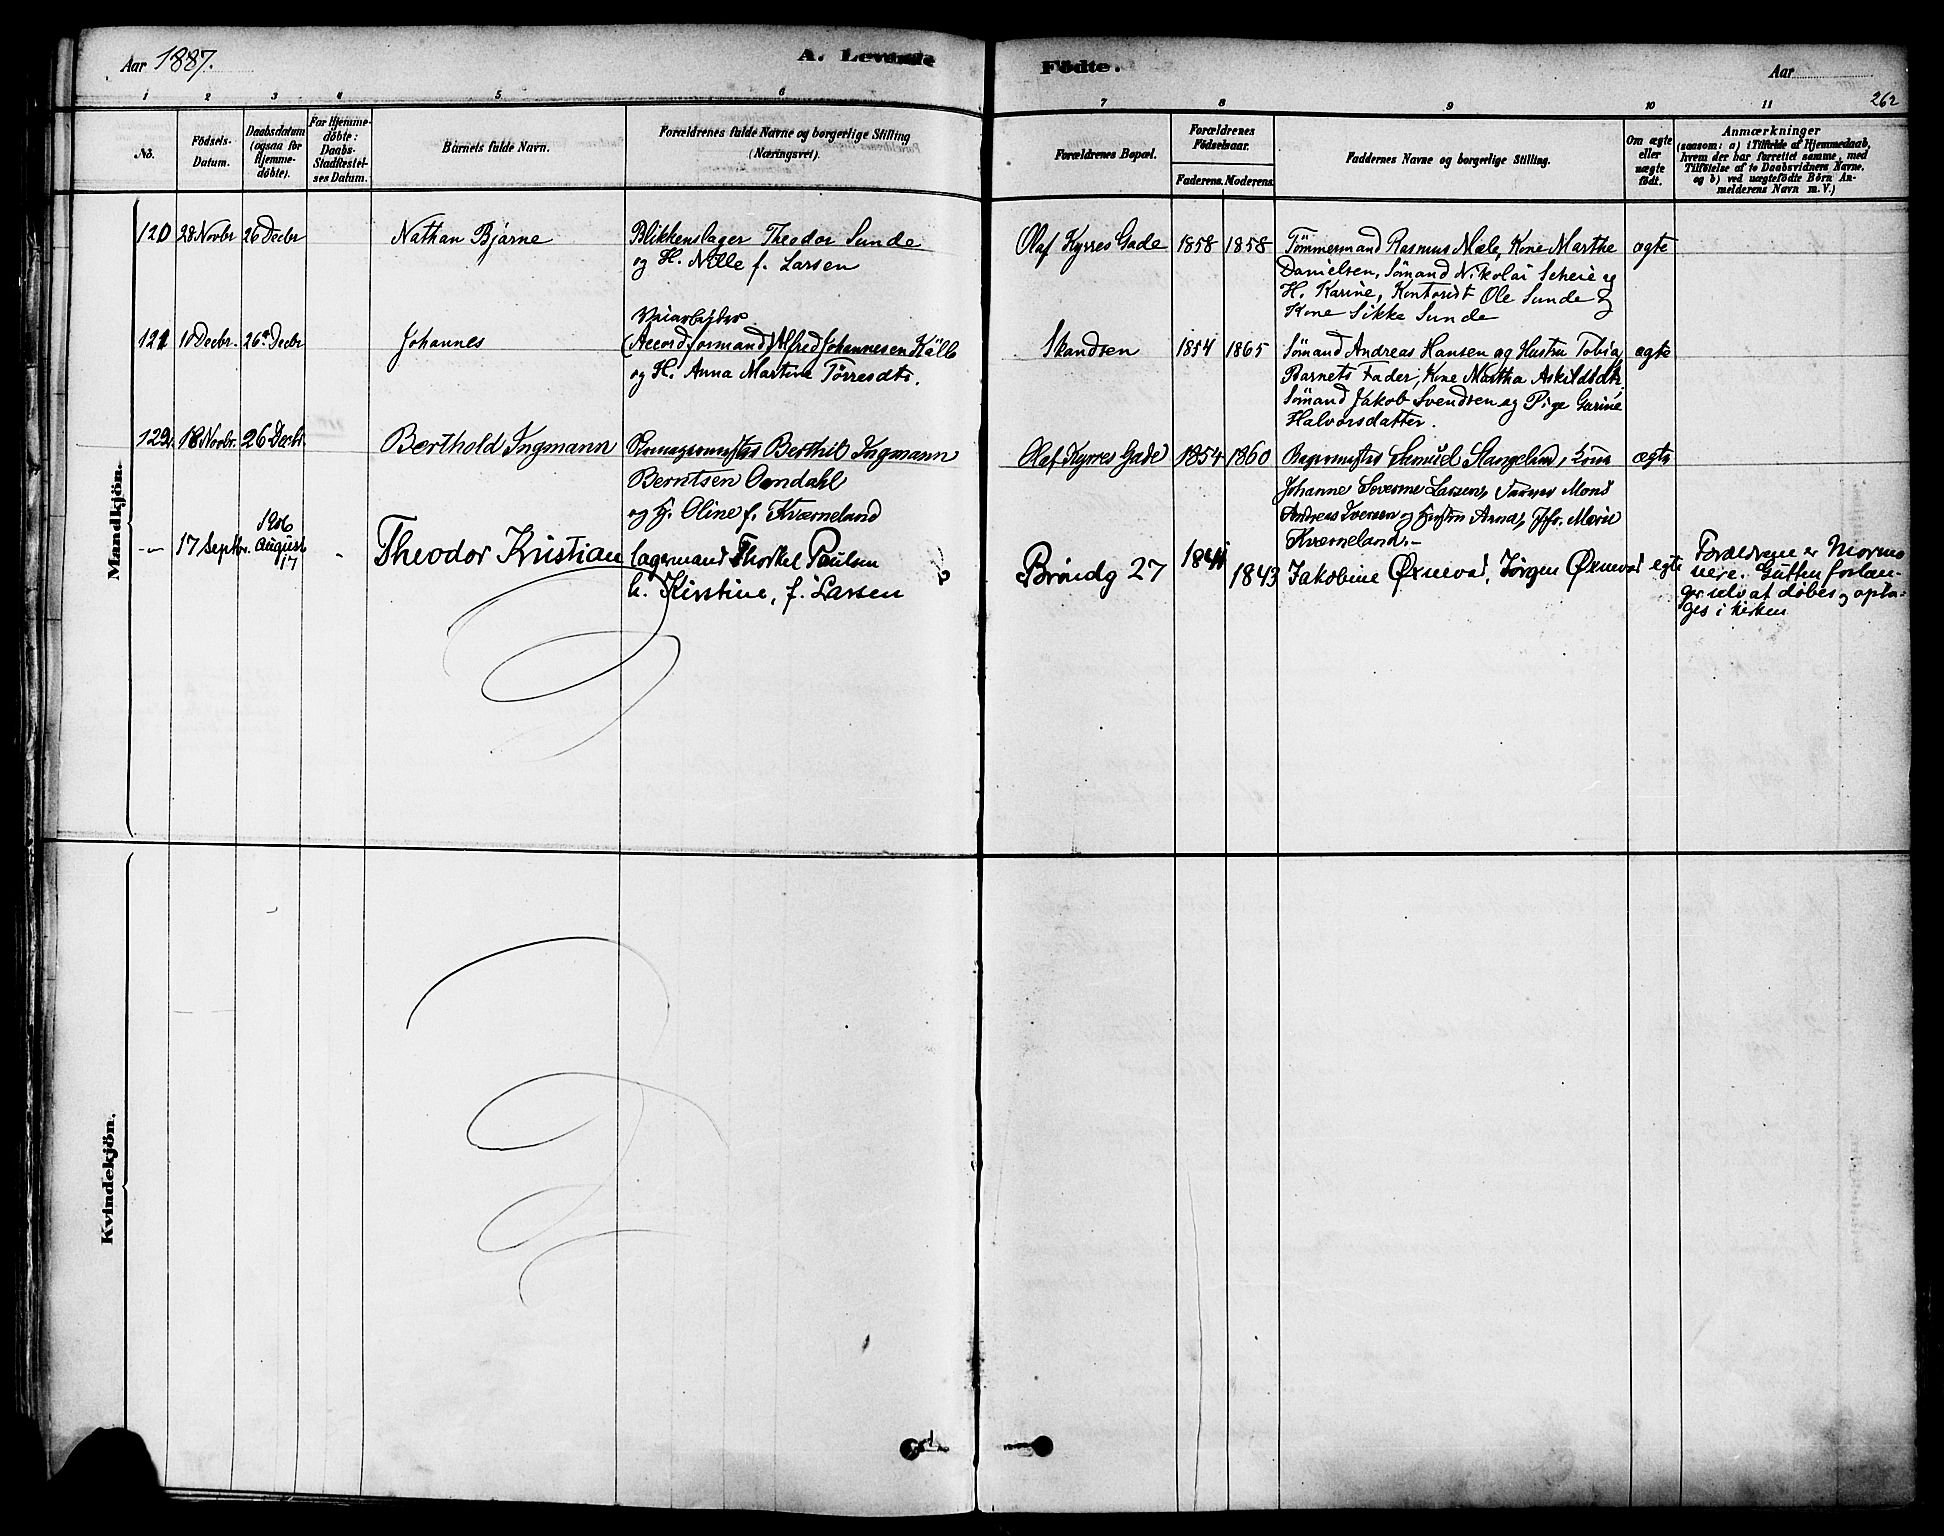 Aar 1887.
A. Levende
Födte.
Aar
262
1 2 3 4 5 6 7 8 9 10 11
No.
Födsels-
Datum.
Daabsdatum
(ogsaa for
Hjemme-
döbte).
For Hjemme-
döbte:
Daabs-
Stadfæstel-
ses Datum.
Barnets fulde Navn.
Forældrenes fulde Navne og borgerlige Stilling
(Næringsvei).
Forældrenes Bopæl.
Forældrenes
Födselsaar.
Faderens. Moderens.
Faddernes Navne og borgerlige Stilling.
Om ægte
eller
uægte
født.
Anmærkninger
(saasom: a) i Tilfælde af Hjemmedaab,
hvem der har forrettet samme, med
Tilföielse af to Daabsvidners Navne,
og b) ved uægtefödte Börn An-
melderens Navn m. V.)
Mandkjön.
120 28 Novbr 26 Decbr Nathan Bjarne Blikkenslager Theodor Sunde
og H. Nille f. Larsen
Olaf Kyrres Gade 1858 1858 Tömmermand Rasmus Mæle, Kone Marthe
Danielsen, Sömand Nikolai Scheie og
H. Karine, Kontorist Ole Sunde og
Kone Sikke Sunde
ægte
121 10 Decbr. 26 Decbr Johannes Veiarbeider
(Accordformand) Alfred Johannesen
og H. Anna Martine Törresdtr.
Skandsen 1854 1865 Sömand Andreas Hansen og Hustru Tobia,
Barnets Fader, Kone Martha Askildsdtr,
Sömand Jakob Svendsen og Pige Garine
Halvorsdatter.
ægte
122 18 Novbr. 26 Decbr. Berthold Ingmann Berthil Ingmann
Berntsen
og H. Oline f. Kværneland
Olaf Kyrres Gade 1854 1860 Bagermester Stangeland, Kone
Johanne Larsen,
Andreas Iversen og Anna,
Kværneland.
ægte
-"- 17 Septbr. 1906
August
17
- Theodor Kristian Lagermand Thorkel Paulsen
h. Kirstine, f. Larsen
Bröndg 27 1844 1843 Jakobine Øxnevad, Jörgen Øxnevad egte
Forældrene er Mormo
nere. Gutten forlan-
ger selv at döbes og opta-
ges i kirken
Kvindekjön.